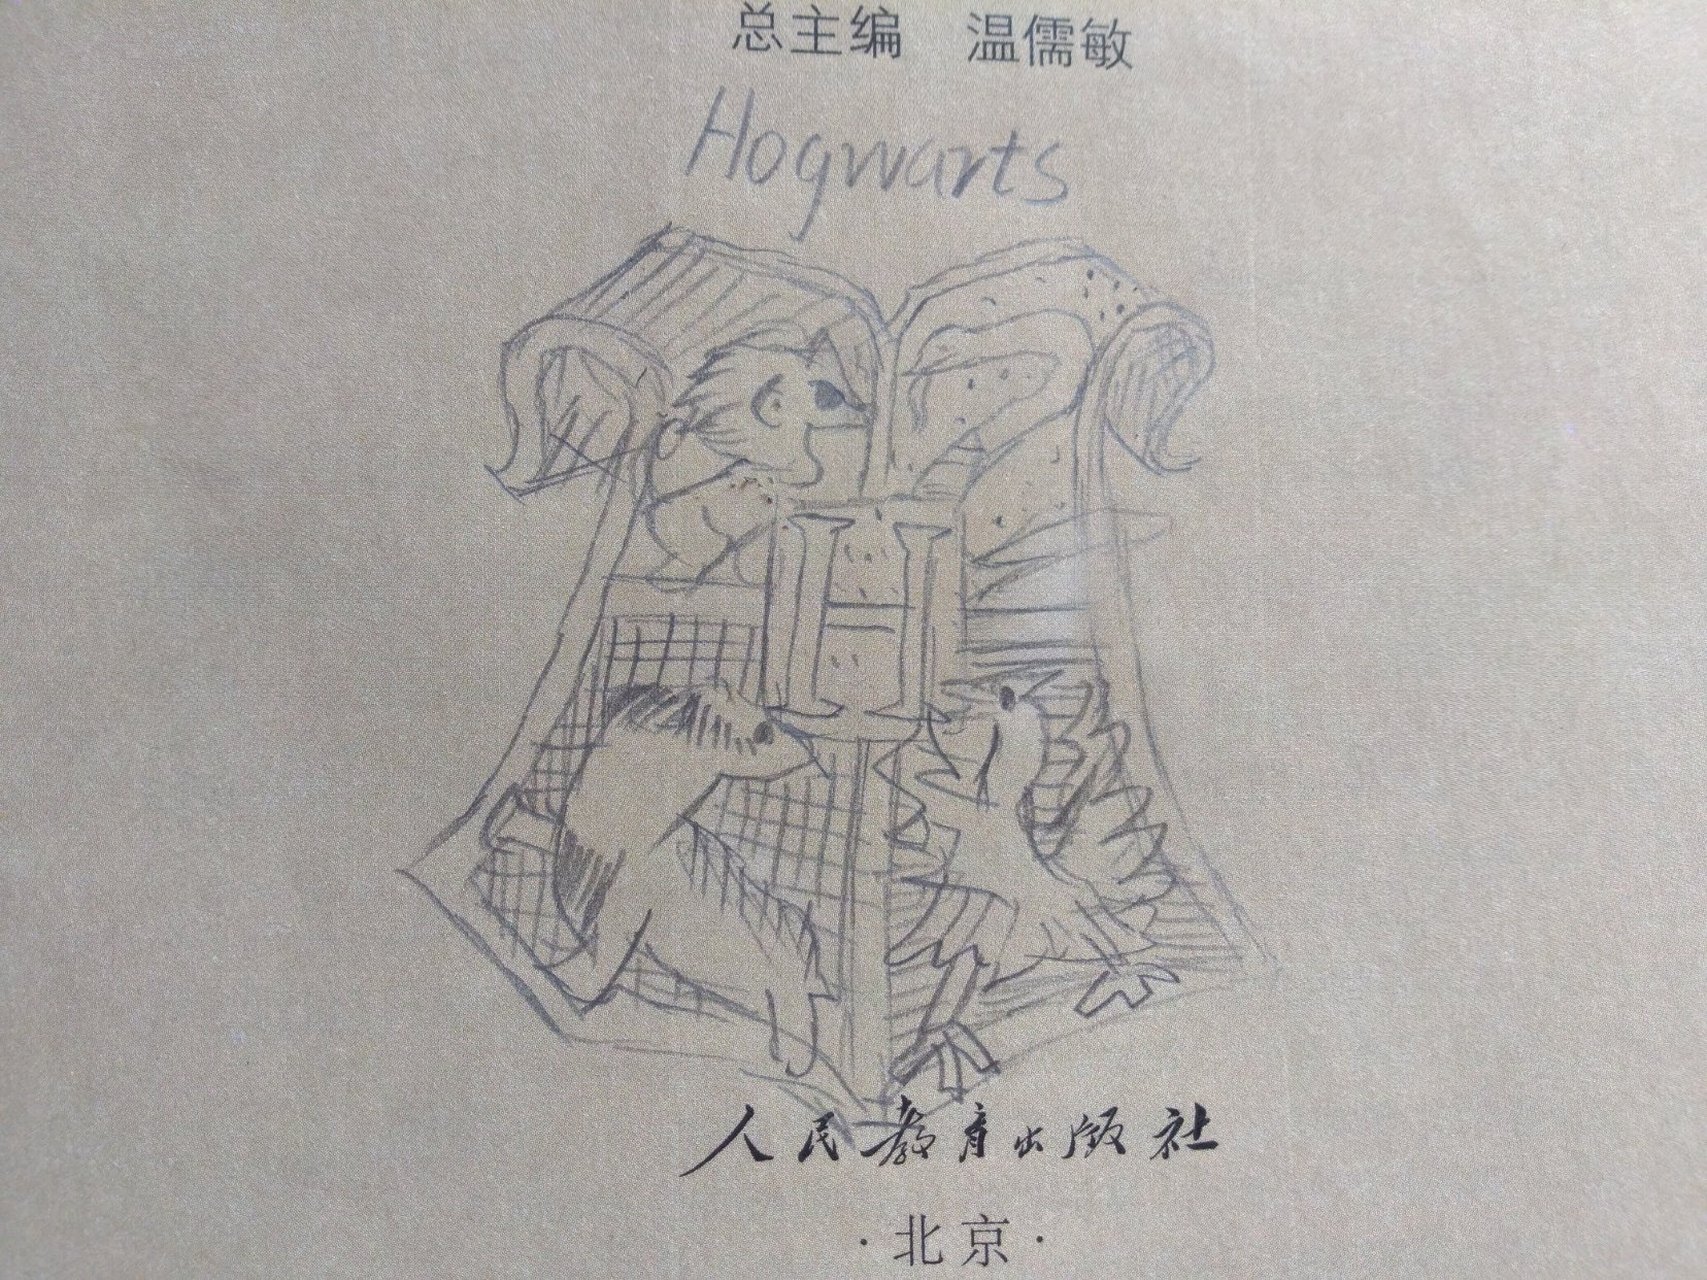 总主编 温儒敏
Hogwarts
H
人民教育出版社
·北京·